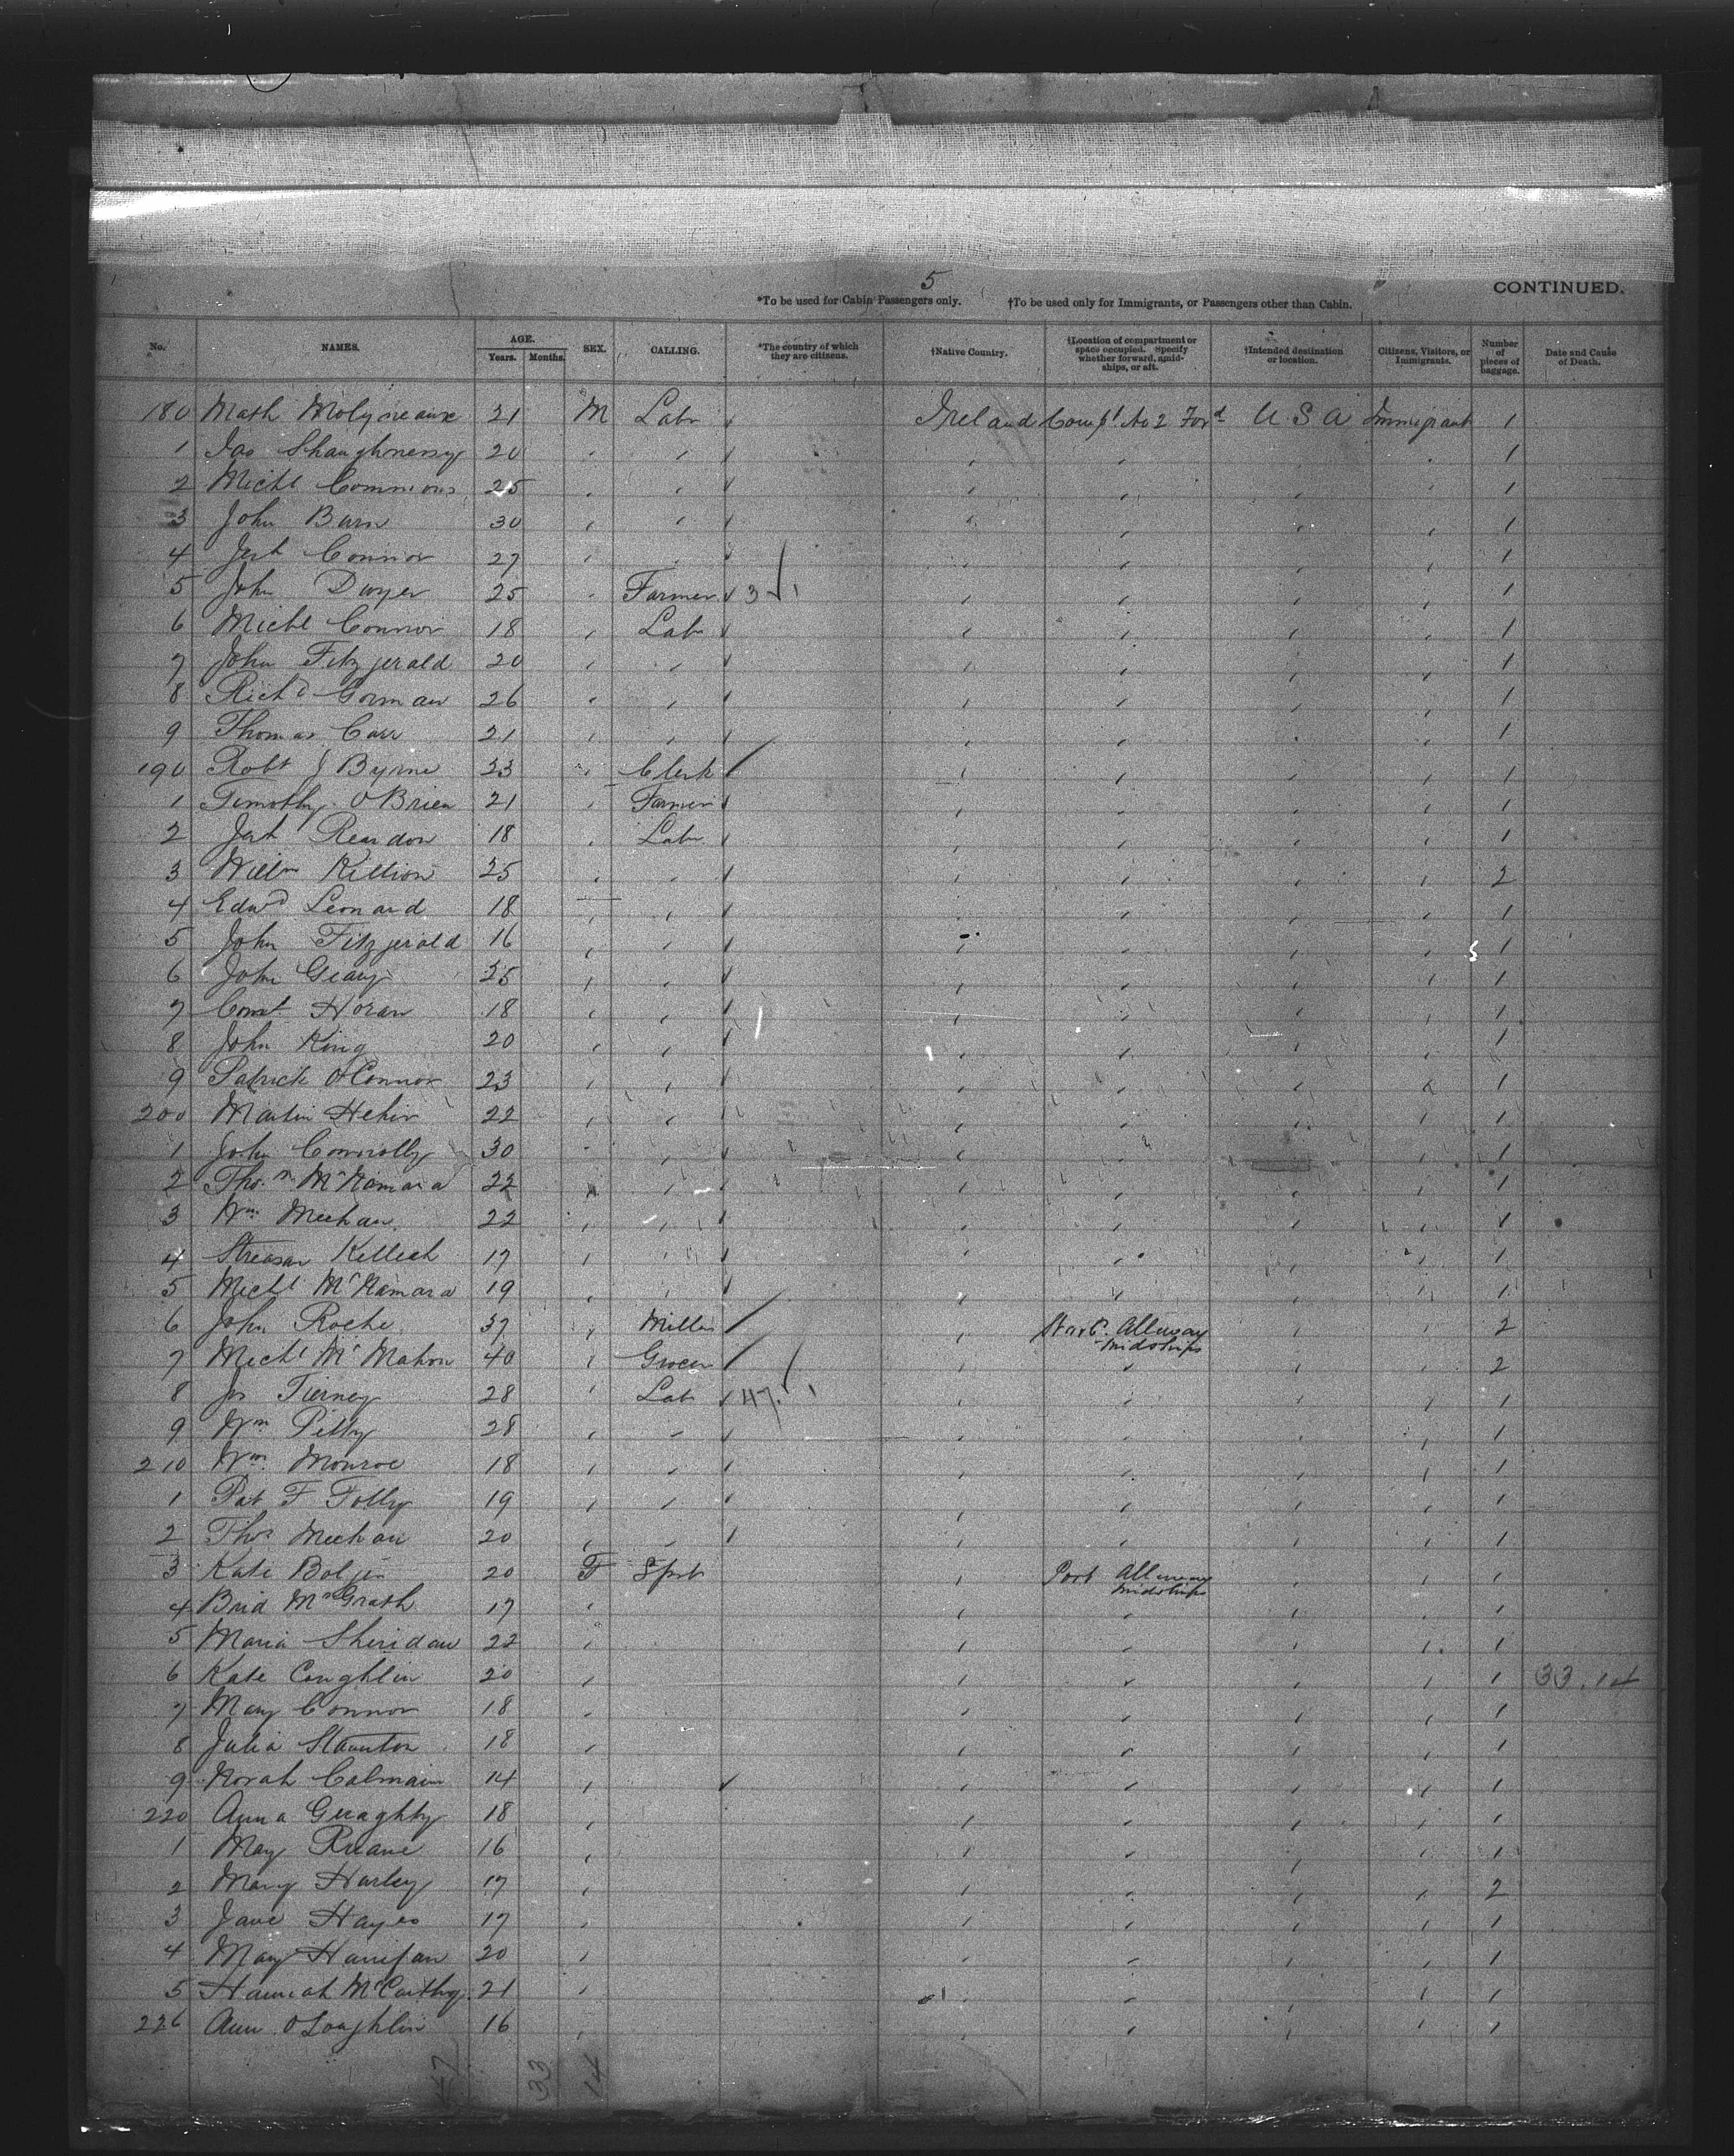 5
CONTINUED.
*To be used for Cabin Passengers only. †To be used only for Immigrants, or Passengers other than Cabin.
No. NAMES. AGE. Years. Months. SEX. CALLING. *The country of which they are citizens. †Native Country. †Location of compartment or space occupied. Specify whether forward, amidships, or aft. †Intended destination or location. Citizens, Visitors, or Immigrants. Number of pieces of baggage. Date and Cause of Death.
180 Math Molyneaux 21 M Labr Ireland Compt No 2 Ford U S A Immigrant 1
1 Jas Shaughnessy 20 1
2 Michl Commons 25 1
3 John Burn 30 1
4 Jerh Connor 27 1
5 John Dwyer 25 Farmer 3 1 1
6 Michl Connor 18 Labr 1
7 John Fitzgerald 20 1
8 Richd Gorman 26 1
9 Thomas Carr 21 1
190 Robt J Byrne 23 Clerk 1
1 Timothy O Brien 21 Farmer 1
2 Jerh Reardon 18 Labr 1
3 Willm Killion 25 2
4 Edwd Leonard 18 1
5 John Fitzgerald 16 1
6 John Geary 25 1
7 Horan 18 1
8 John King 20 1
9 Patrick O'Connor 23 1
200 Martin Hehir 22 1
1 John Connolly 30 1
2 Thos McNamara 22 1
3 Wm Meehan 22 1
4 17 1
5 Michl McNamara 19 1
6 John Roche 37 Miller Starb. Alleway midships 2
7 Michl McMahon 40 Grocer 2
8 Jas Tierney 28 Labr 47 1 1
9 Wm Petty 28 1
210 Wm Monroe 18 1
1 Pat F Folly 19 1
2 Thos Meehan 20 1
3 Kate 20 F Spst Port Alleway midships 1
4 Brid McGrath 17 1
5 Maria Sheridan 22 1
6 Kate Coughlin 20 1 33.14
7 Mary Connor 18 1
8 Julia Staunton 18 1
9 Norah Calmain 14 1
220 Anna Geraghty 18 1
1 May Ruane 16 1
2 Mary Hurley 17 2
3 Jane Hayes 17 1
4 Mary Hanifan 20 1
5 Hannah McCarthy 21 1
226 Ann O Loughlin 16 1
47 33 14